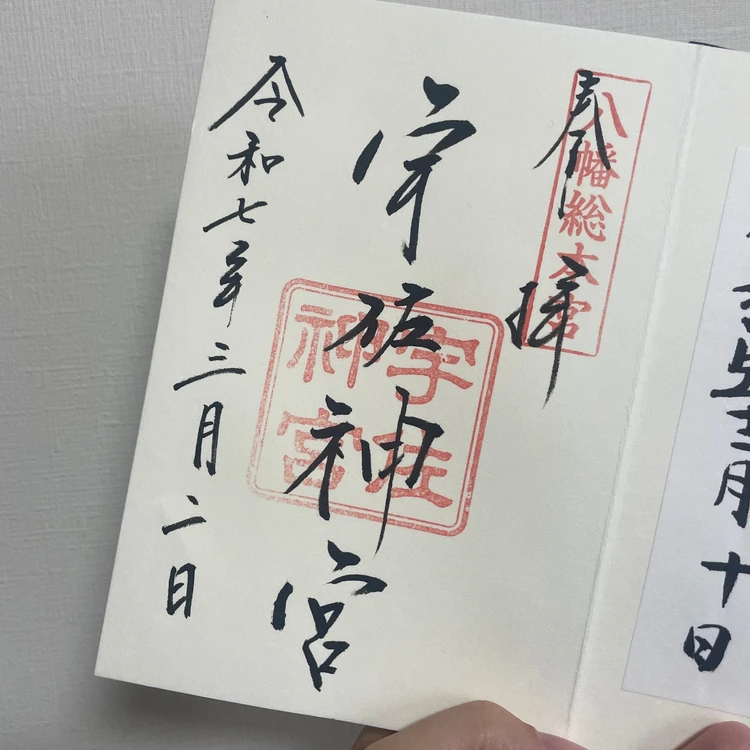 月十日
奉拝
八幡総本宮
宇佐神宮
宇佐神宮
令和七年三月二日